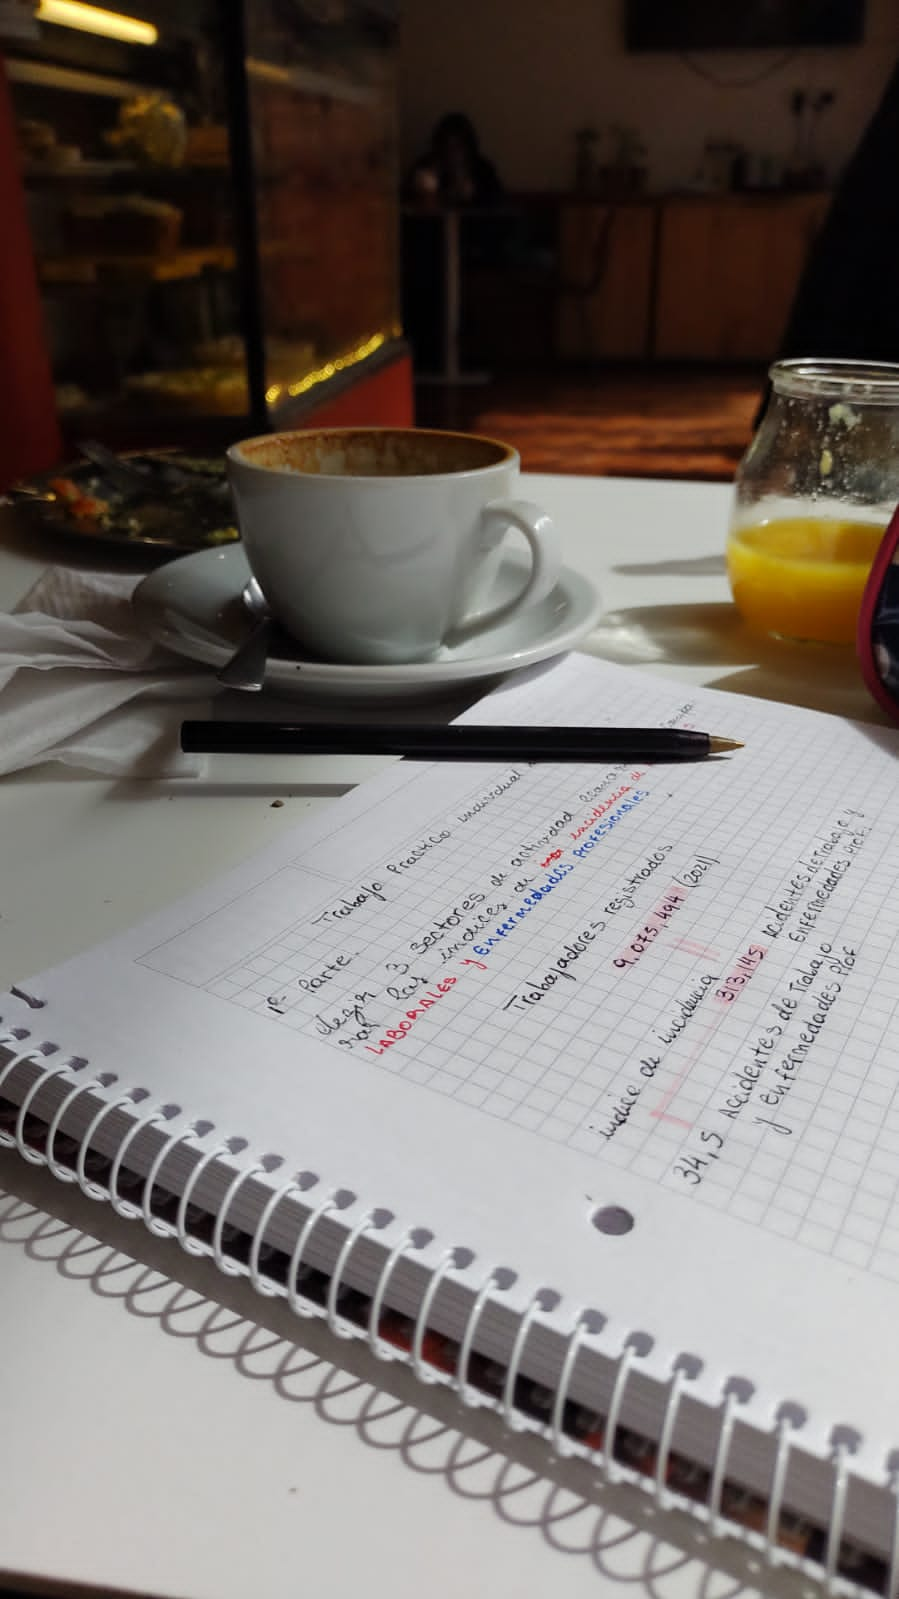 Trabajo Practico individual
1º Parte.
elegir 3 sectores de actividad
rar los indices de incidencia de
LABORALES y ENFERMEDADES PROFESIONALES
Trabajadores registrados
9.075.494 (2021)
indice de incidencia
313,145 Accidentes de Trabajo y
Enfermedades Prof.
34,5 Accidentes de Trabajo
y Enfermedades Prof